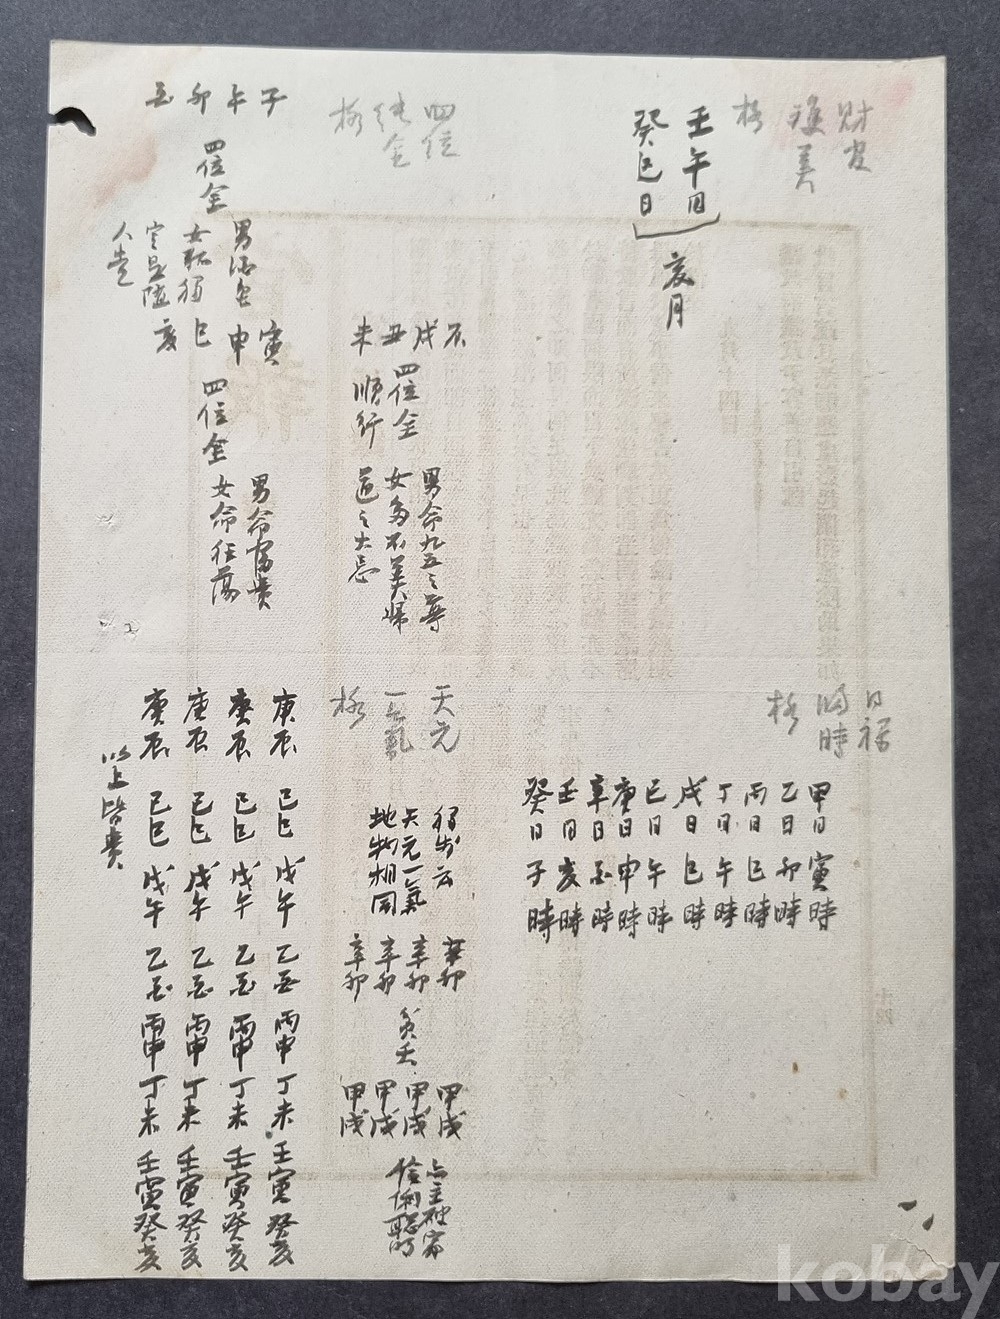 財官
雙美
格
壬午日
癸巳日
亥月
日祿
歸時
格
甲日寅時
乙日卯時
丙日巳時
丁日午時
戊日巳時
己日午時
庚日申時
辛日酉時
壬日亥時
癸日子時
四位
純全
格
子午卯酉
四位全
男酒色
女耽
定是隨
人走
寅申巳亥
四位全
男命富貴
女命狂蕩
辰戌丑未
四位全
順行
男命九五之尊
女多不美歸
道之大忌
天元
一氣
格
云
天元一氣
地物相同
辛卯
辛卯
辛卯
辛卯
貧夭
甲戌
甲戌
甲戌
甲戌
亦主破家
伶俐聰明
庚辰 己巳 戊午 乙酉 丙申 丁未 壬寅 癸亥
庚辰 己巳 戊午 乙酉 丙申 丁未 壬寅 癸亥
庚辰 己巳 戊午 乙酉 丙申 丁未 壬寅 癸亥
庚辰 己巳 戊午 乙酉 丙申 丁未 壬寅 癸亥
以上皆貴
kobay